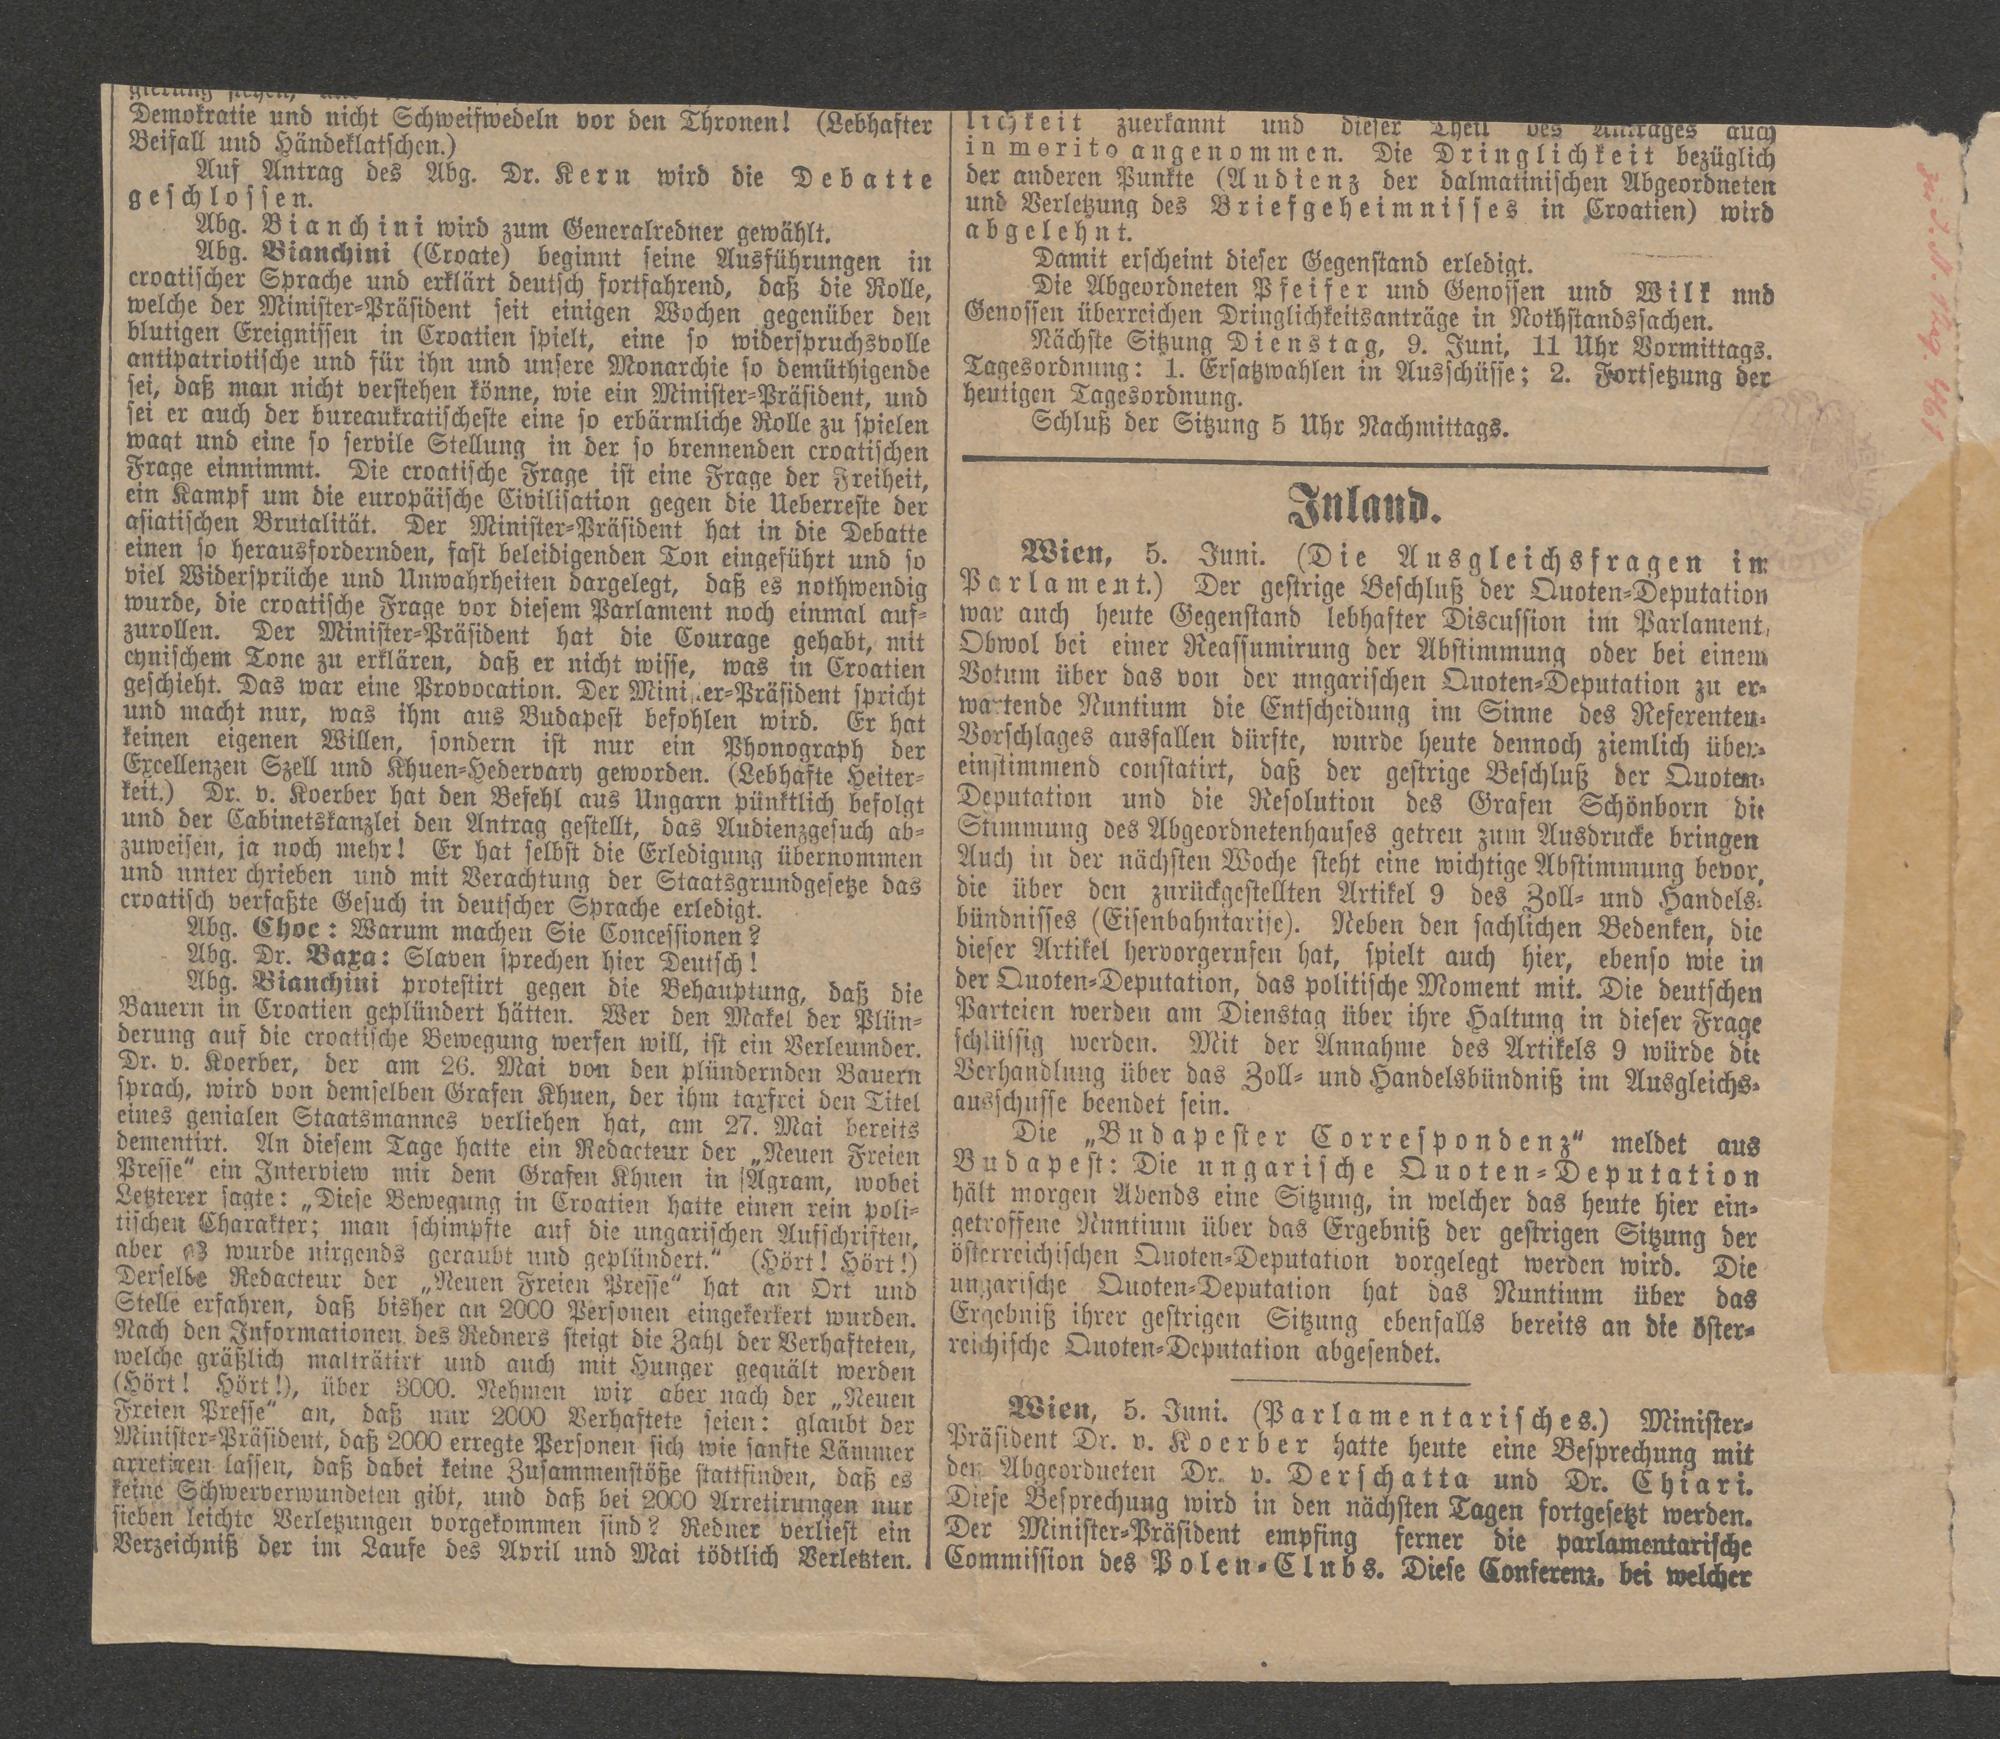 Demokratie und nicht Schweifwedeln vor den Thronen! (Lebhafter
Beifall und Händeklatschen.)
Auf Antrag des Abg. Dr. Kern wird die Debatte
geschlossen.
Abg. Bianchini wird zum Generalredner gewählt.
Abg. Bianchini (Croate) beginnt seine Ausführungen in
croatischer Sprache und erklärt deutsch fortfahrend, daß die Rolle,
welche der Minister-Präsident seit einigen Wochen gegenüber den
blutigen Ereignissen in Croatien spielt, eine so widerspruchsvolle
antipatriotische und für ihn und unsere Monarchie so demüthigende
sei, daß man nicht verstehen könne, wie ein Minister-Präsident, und
sei er auch der bureaukratischeste eine so erbärmliche Rolle zu spielen
wagt und eine so servile Stellung in der so brennenden croatischen
Frage einnimmt. Die croatische Frage ist eine Frage der Freiheit,
ein Kampf um die europäische Civilisation gegen die Ueberreste der
asiatischen Brutalität. Der Minister-Präsident hat in die Debatte
einen so herausfordernden, fast beleidigenden Ton eingeführt und so
viel Widersprüche und Unwahrheiten dargelegt, daß es nothwendig
wurde, die croatische Frage vor diesem Parlament noch einmal auf-
zurollen. Der Minister-Präsident hat die Courage gehabt, mit
cynischem Tone zu erklären, daß er nicht wisse, was in Croatien
geschieht. Das war eine Provocation. Der Mini er-Präsident spricht
und macht nur, was ihm aus Budapest befohlen wird. Er hat
keinen eigenen Willen, sondern ist nur ein Phonograph der
Excellenzen Szell und Khuen-Hedervary geworden. (Lebhafte Heiter-
keit.) Dr. v. Koerber hat den Befehl aus Ungarn pünktlich befolgt
und der Cabinetskanzlei den Antrag gestellt, das Audienzgesuch ab-
zuweisen, ja noch mehr! Er hat selbst die Erledigung übernommen
und unter chrieben und mit Verachtung der Staatsgrundgesetze das
croatisch verfaßte Gesuch in deutscher Sprache erledigt.
Abg. Choc: Warum machen Sie Concessionen?
Abg. Dr. Baxa: Slaven sprechen hier Deutsch!
Abg. Bianchini protestirt gegen die Behauptung, daß die
Bauern in Croatien geplündert hätten. Wer den Makel der Plün-
derung auf die croatische Bewegung werfen will, ist ein Verleumder.
Dr. v. Koerber, der am 26. Mai von den plündernden Bauern
sprach, wird von demselben Grafen Khuen, der ihm taxfrei den Titel
eines genialen Staatsmannes verliehen hat, am 27. Mai bereits
dementirt. An diesem Tage hatte ein Redacteur der „Neuen Freien
Presse“ ein Interview mit dem Grafen Khuen in Agram, wobei
Letzterer sagte: „Diese Bewegung in Croatien hatte einen rein poli-
tischen Charakter; man schimpfte auf die ungarischen Aufschriften,
aber es wurde nirgends geraubt und geplündert.“ (Hört! Hört!)
Derselbe Redacteur der „Neuen Freien Presse“ hat an Ort und
Stelle erfahren, daß bisher an 2000 Personen eingekerkert wurden.
Nach den Informationen des Redners steigt die Zahl der Verhafteten,
welche gräßlich malträtirt und auch mit Hunger gequält werden
(Hört! Hört!), über 3000. Nehmen wir aber nach der „Neuen
Freien Presse“ an, daß nur 2000 Verhaftete seien: glaubt der
Minister-Präsident, daß 2000 erregte Personen sich wie sanfte Lämmer
arretiren lassen, daß dabei keine Zusammenstöße stattfinden, daß es
keine Schwerverwundeten gibt, und daß bei 2000 Arretirungen nur
sieben leichte Verletzungen vorgekommen sind? Redner verliest ein
Verzeichniß der im Laufe des April und Mai tödtlich Verletzten.
lichkeit zuerkannt und dieser Theil des Antrages auch
in merito angenommen. Die Dringlichkeit bezüglich
der anderen Punkte (Audienz der dalmatinischen Abgeordneten
und Verletzung des Briefgeheimnisses in Croatien) wird
abgelehnt.
Damit erscheint dieser Gegenstand erledigt.
Die Abgeordneten Pfeifer und Genossen und Wilk und
Genossen überreichen Dringlichkeitsanträge in Nothstandssachen.
Nächste Sitzung Dienstag, 9. Juni, 11 Uhr Vormittags.
Tagesordnung: 1. Ersatzwahlen in Ausschüsse; 2. Fortsetzung der
heutigen Tagesordnung.
Schluß der Sitzung 5 Uhr Nachmittags.
Inland.
Wien, 5. Juni. (Die Ausgleichsfragen im
Parlament.) Der gestrige Beschluß der Quoten-Deputation
war auch heute Gegenstand lebhafter Discussion im Parlament.
Obwol bei einer Reassumirung der Abstimmung oder bei einem
Votum über das von der ungarischen Quoten-Deputation zu er-
wartende Nuntium die Entscheidung im Sinne des Referenten-
Vorschlages ausfallen dürfte, wurde heute dennoch ziemlich über-
einstimmend constatirt, daß der gestrige Beschluß der Quoten-
Deputation und die Resolution des Grafen Schönborn die
Stimmung des Abgeordnetenhauses getreu zum Ausdrucke bringen
Auch in der nächsten Woche steht eine wichtige Abstimmung bevor,
die über den zurückgestellten Artikel 9 des Zoll- und Handels-
bündnisses (Eisenbahntarife). Neben den sachlichen Bedenken, die
dieser Artikel hervorgerufen hat, spielt auch hier, ebenso wie in
der Quoten-Deputation, das politische Moment mit. Die deutschen
Parteien werden am Dienstag über ihre Haltung in dieser Frage
schlüssig werden. Mit der Annahme des Artikels 9 würde die
Verhandlung über das Zoll- und Handelsbündniß im Ausgleichs-
ausschusse beendet sein.
Die „Budapester Correspondenz“ meldet aus
Budapest: Die ungarische Quoten-Deputation
hält morgen Abends eine Sitzung, in welcher das heute hier ein-
getroffene Nuntium über das Ergebniß der gestrigen Sitzung der
österreichischen Quoten-Deputation vorgelegt werden wird. Die
ungarische Quoten-Deputation hat das Nuntium über das
Ergebniß ihrer gestrigen Sitzung ebenfalls bereits an die öster-
reichische Quoten-Deputation abgesendet.
Wien, 5. Juni. (Parlamentarisches.) Minister-
Präsident Dr. v. Koerber hatte heute eine Besprechung mit
den Abgeordneten Dr. v. Derschatta und Dr. Chiari.
Diese Besprechung wird in den nächsten Tagen fortgesetzt werden.
Der Minister-Präsident empfing ferner die parlamentarische
Commission des Polen-Clubs. Diese Conferenz, bei welcher